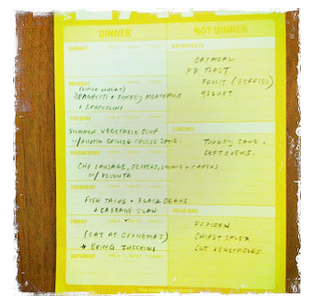 DINNER
NOT DINNER
SUNDAY
BREAKFASTS
OATMEAL
PB TOAST
FRUIT (BERRIES)
YOGURT
MONDAY
(WHOLE WHEAT)
SPAGHETTI + TURKEY MEATBALLS
+ BROCCOLINI
TUESDAY
SUMMER VEGETABLE SOUP
W/ GRILLED CHEESE SAND.
LUNCHES
TURKEY SAND.
LEFTOVERS
WEDNESDAY
CHX SAUSAGE, PEPPERS,
W/ POLENTA
THURSDAY
FISH TACOS + BLACK BEANS
+ CABBAGE SLAW
FRIDAY
(EAT AT GRANDMA'S)
→ BRING ZUCCHINI
SNACKING
POPCORN
CHIPS + SALSA
CUT VEGETABLES
SATURDAY